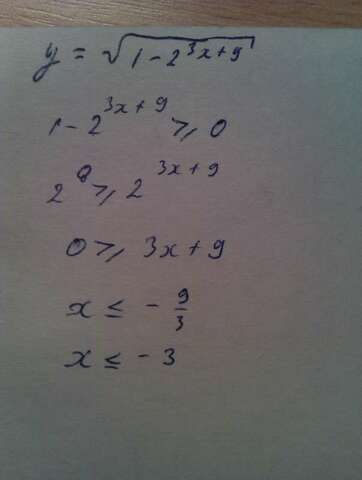 y = √(1 - 2^(3x+9))
1 - 2^(3x+9) ⩾ 0
2^0 ⩾ 2^(3x+9)
0 ⩾ 3x+9
x ≤ - 9/3
x ≤ - 3